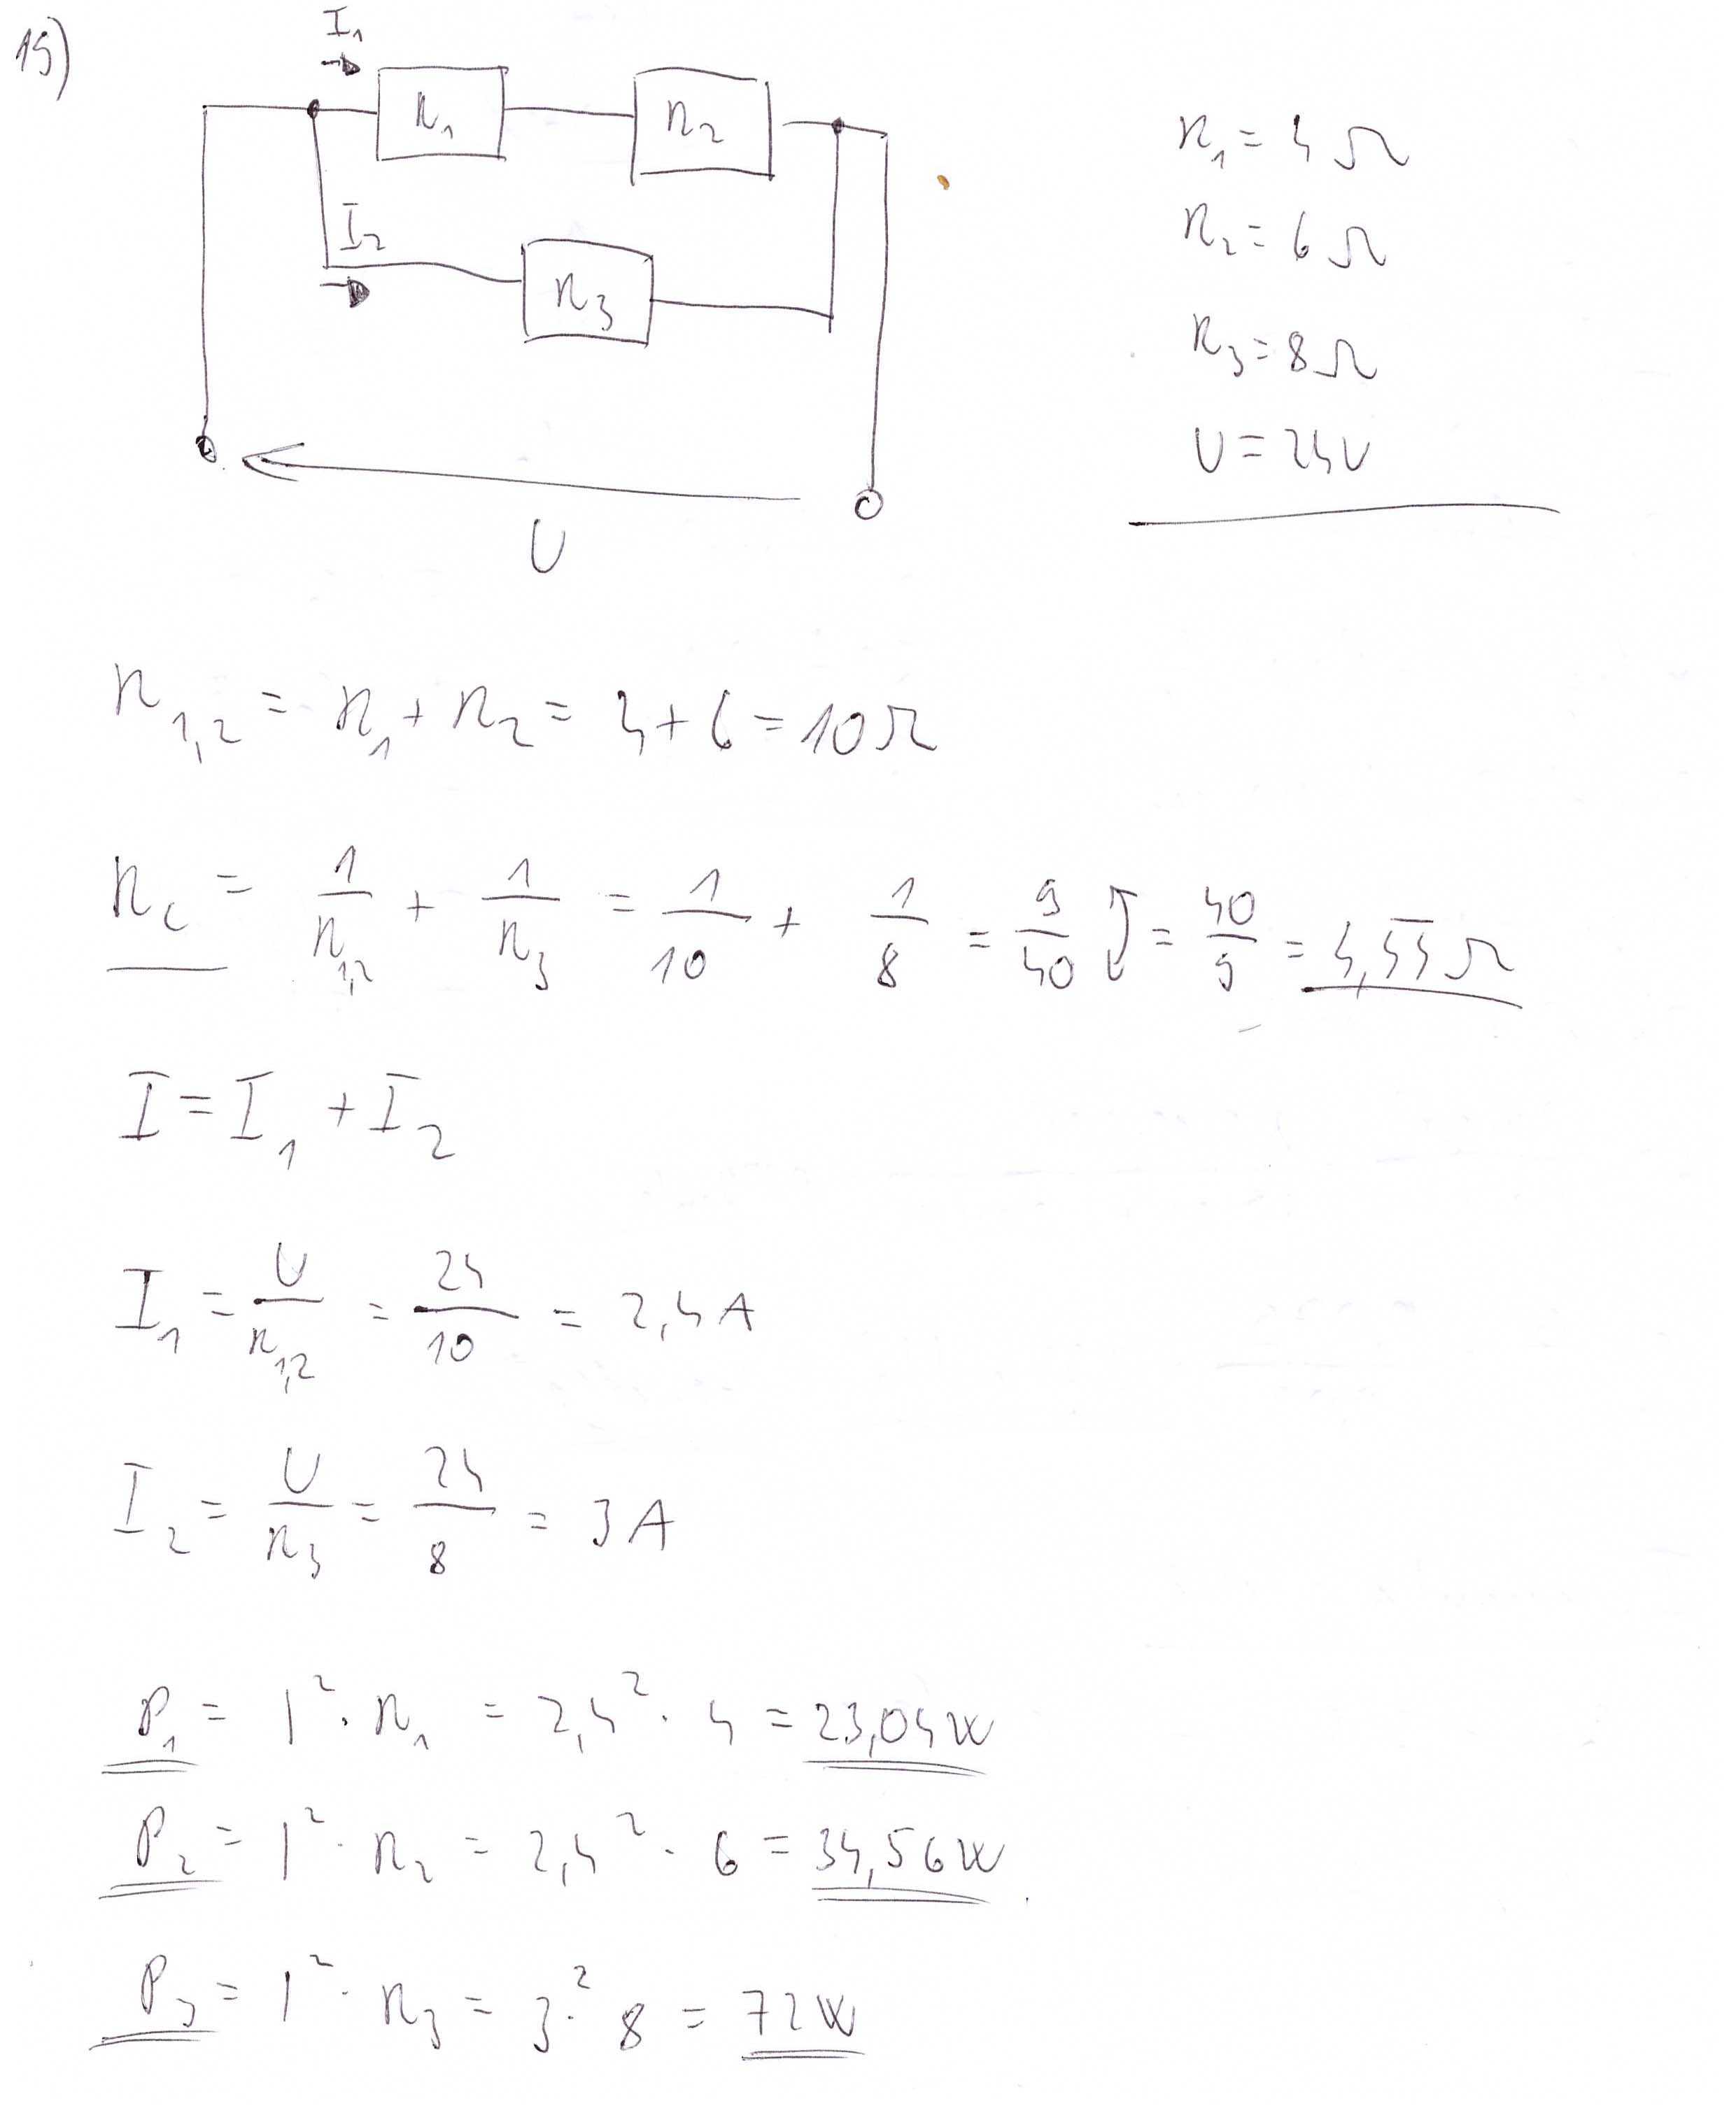 15)
I₁
R₁
R₂
I₂
R₃
U
R₁ = 4 Ω
R₂ = 6 Ω
R₃ = 8 Ω
U = 24V
R₁,₂ = R₁ + R₂ = 4 + 6 = 10 Ω
R_c = 1/R₁,₂ + 1/R₃ = 1/10 + 1/8 = 9/40 ↕ = 40/9 = 4,4̅4̅ Ω
I = I₁ + I₂
I₁ = U/R₁,₂ = 24/10 = 2,4 A
I₂ = U/R₃ = 24/8 = 3 A
P₁ = I² · R₁ = 2,4² · 4 = 23,04 W
P₂ = I² · R₂ = 2,4² · 6 = 34,56 W
P₃ = I² · R₃ = 3² · 8 = 72 W